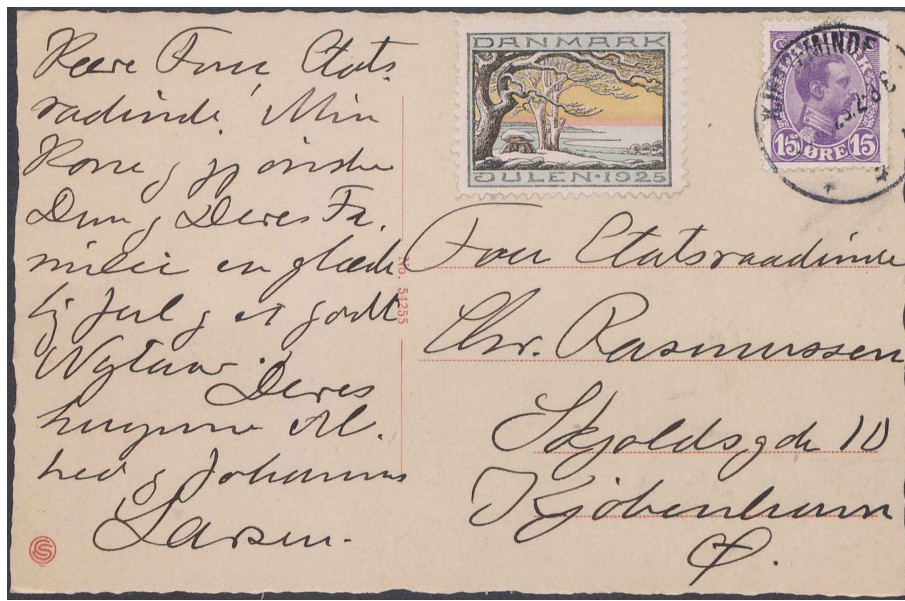 Kære Frue Etats-
raadinde! Min
Kone og jeg ønsker
Dem og Deres Fa-
milie en glæde
lig Jul og et godt
Nytaar.
Deres
hengivne Al-
hed og Johannes
Larsen.
DANMARK
JULEN·1925
KJERTEMINDE
15 ØRE 15
No. 54255
Frue Etatsraadinde
Chr. Rasmussen
Skjoldsgde 10
Kjøbenhavn
Ø.